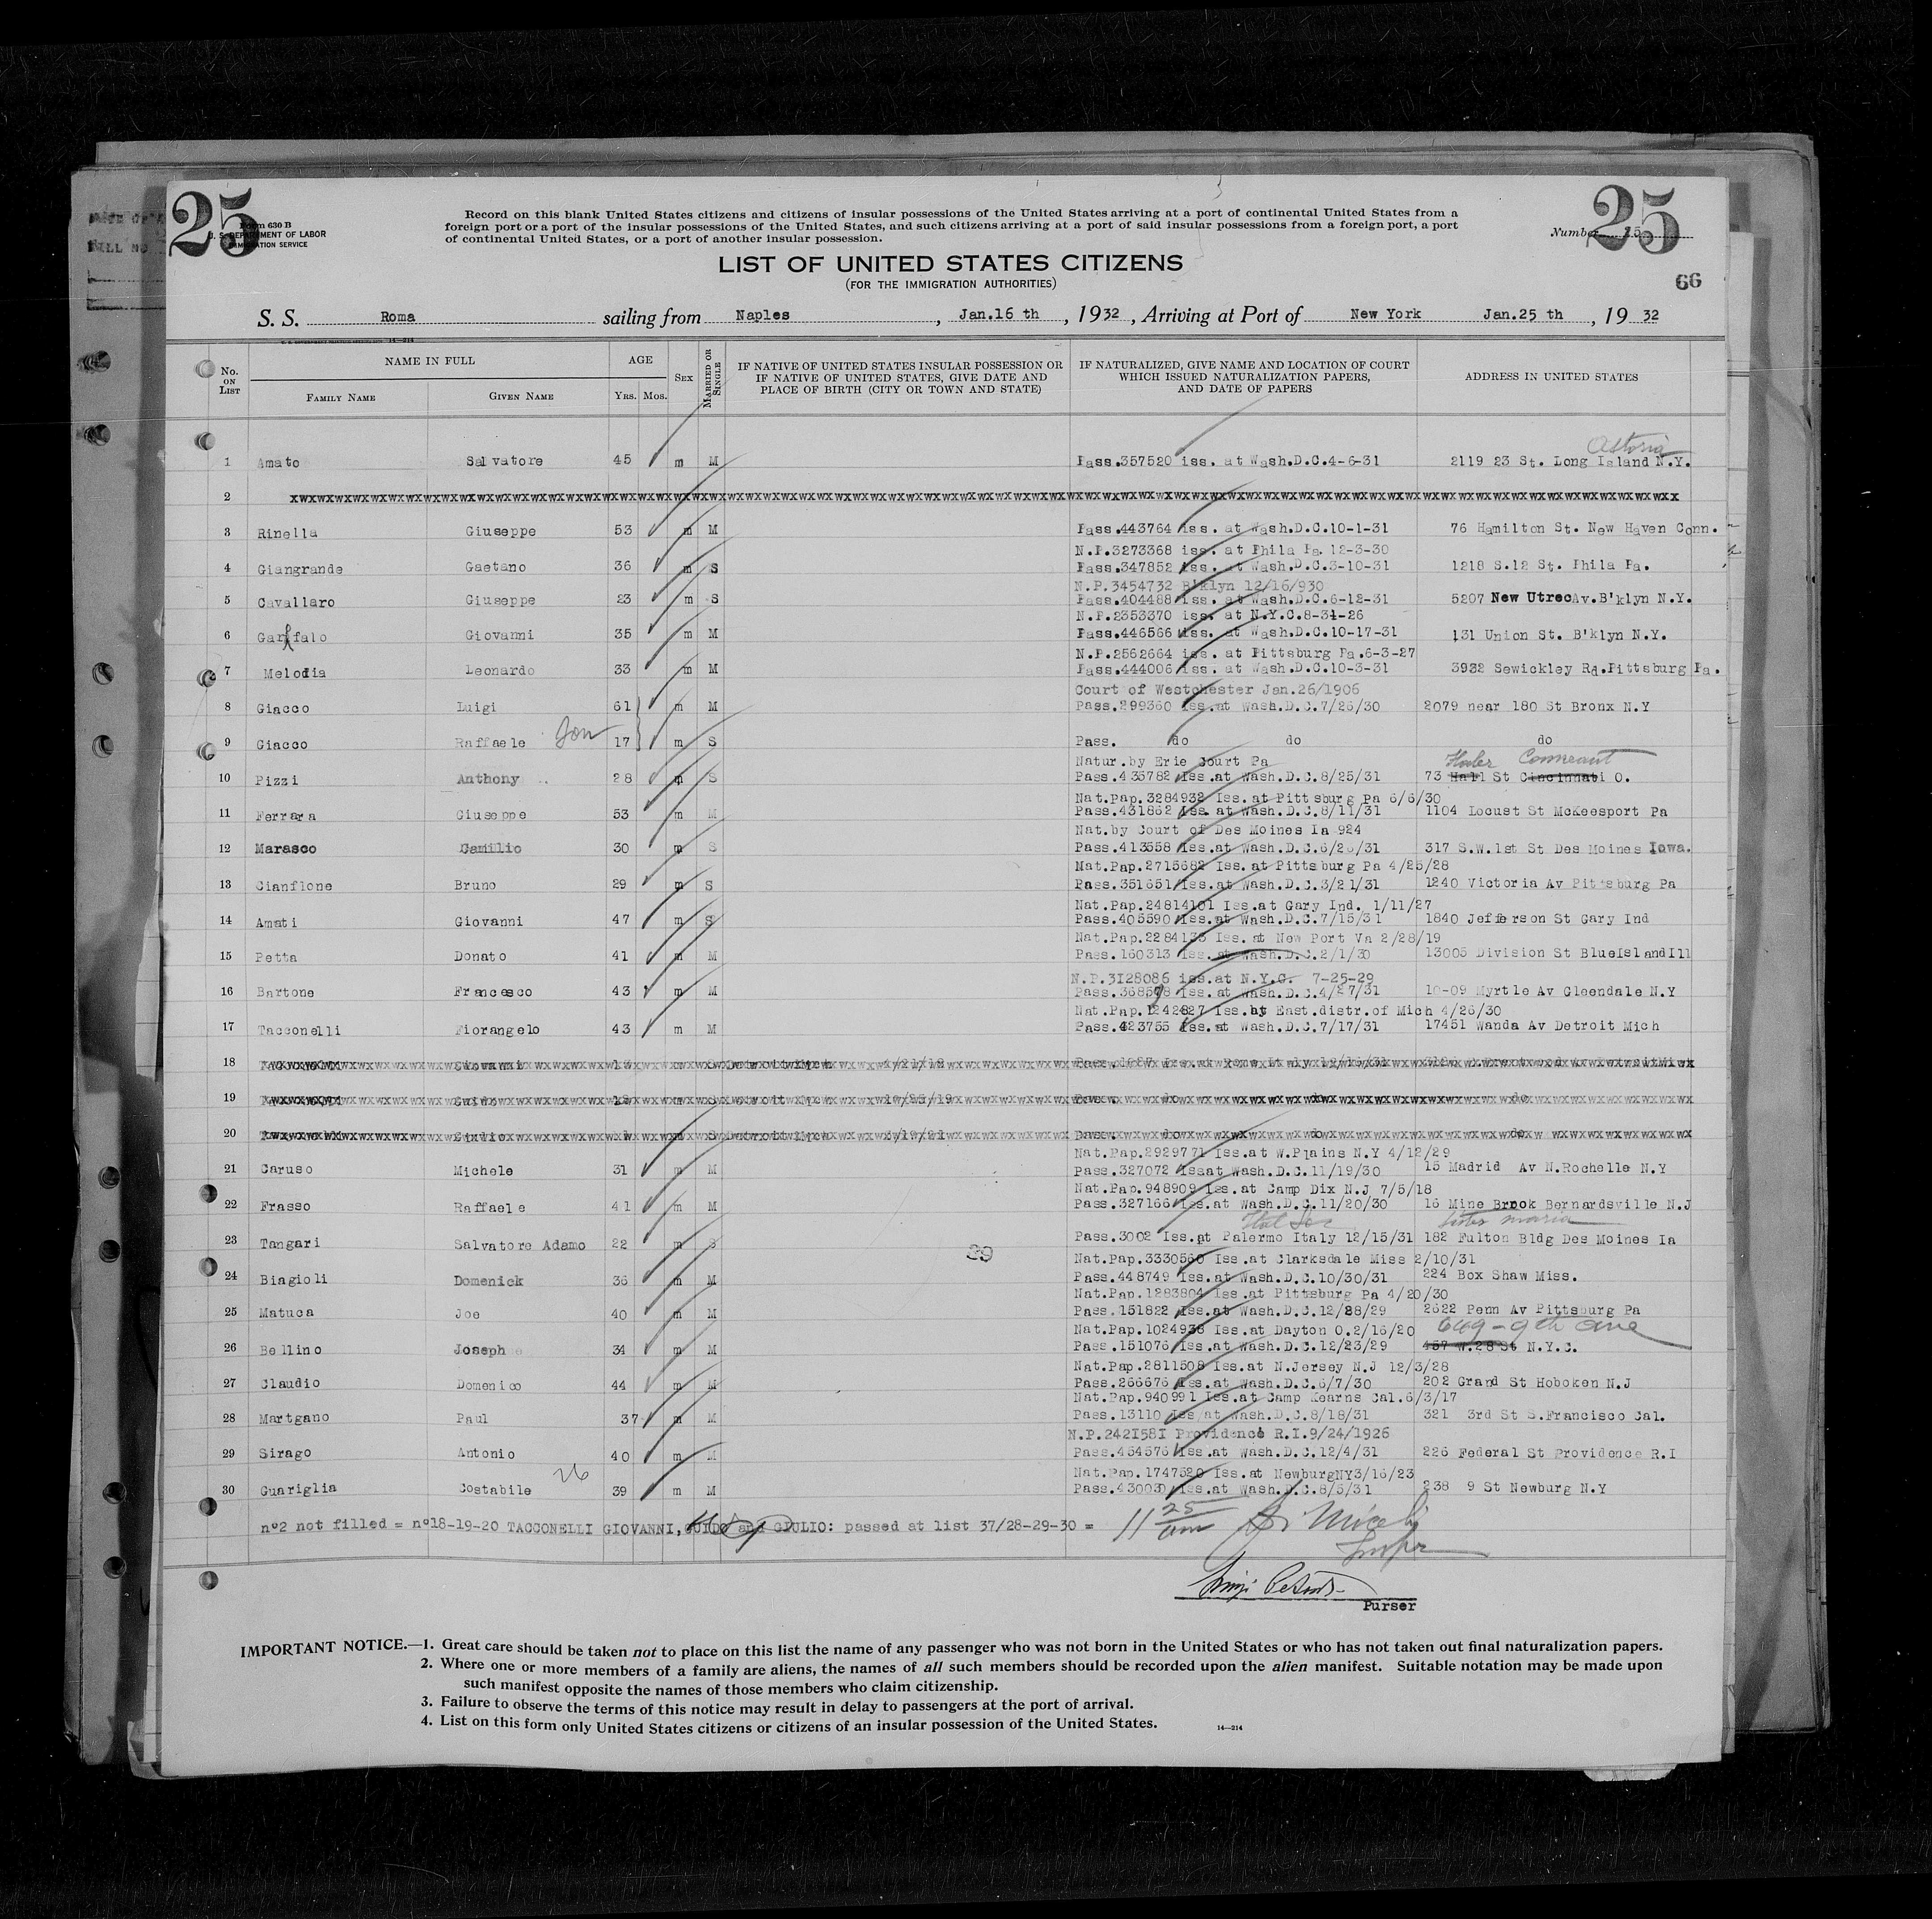 25
25
Form 630 B
U. S. DEPARTMENT OF LABOR
IMMIGRATION SERVICE
Record on this blank United States citizens and citizens of insular possessions of the United States arriving at a port of continental United States from a
foreign port or a port of the insular possessions of the United States, and such citizens arriving at a port of said insular possessions from a foreign port, a port
of continental United States, or a port of another insular possession.
Number 15
66
LIST OF UNITED STATES CITIZENS
(FOR THE IMMIGRATION AUTHORITIES)
S. S. Roma sailing from Naples, Jan.16 th, 1932, Arriving at Port of New York Jan.25 th, 19 32
No. ON LIST NAME IN FULL FAMILY NAME GIVEN NAME AGE YRS. MOS. SEX MARRIED OR SINGLE IF NATIVE OF UNITED STATES INSULAR POSSESSION OR IF NATIVE OF UNITED STATES, GIVE DATE AND PLACE OF BIRTH (CITY OR TOWN AND STATE) IF NATURALIZED, GIVE NAME AND LOCATION OF COURT WHICH ISSUED NATURALIZATION PAPERS, AND DATE OF PAPERS ADDRESS IN UNITED STATES
Astoria
1 Amato Salvatore 45 m M Pass.357520 iss. at Wash.D.C.4-6-31 2119 23 St. Long Island N.Y.
2
3 Rinella Giuseppe 53 m M Pass.443764 iss. at Wash.D.C.10-1-31 76 Hamilton St. New Haven Conn.
N.P.3273368 iss. at Phila Pa. 12-3-30
4 Giangrande Gaetano 36 m S Pass.347852 iss. at Wash.D.C.3-10-31 1218 S.12 St. Phila Pa.
N.P.3454732 B'klyn 12/16/930
5 Cavallaro Giuseppe 23 m S Pass.404488 iss. at Wash.D.C.6-12-31 5207 New UtrecAv.B'klyn N.Y.
N.P.2353370 iss. at N.Y.C.8-31-26
6 Garofalo Giovanni 35 m M Pass.446566 iss. at Wash.D.C.10-17-31 131 Union St. B'klyn N.Y.
N.P.2562664 iss. at Pittsburg Pa.6-3-27
7 Melodia Leonardo 33 m M Pass.444006 iss. at Wash.D.C.10-3-31 3932 Sewickley Rd.Pittsburg Pa.
Court of Westchester Jan.26/1906
8 Giacco Luigi 61 m M Pass.299360 Iss.at Wash.D.C.7/26/30 2079 near 180 St Bronx N.Y
9 Giacco Raffaele Son 17 m S Pass. do do do
Natur.by Erie Court Pa Conneaut
10 Pizzi Anthony 28 m S Pass.435782 Iss.at Wash.D.C.8/25/31 73 Hall St Cincinnati O.
Nat.Pap.3284932 Iss.at Pittsburg Pa 6/6/30
11 Ferrara Giuseppe 53 m M Pass.431862 Iss.at Wash.D.C.8/11/31 1104 Locust St McKeesport Pa
Nat.by Court of Des Moines Ia 924
12 Marasco Camillo 30 m S Pass.413558 Iss.at Wash.D.C.6/26/31 317 S.W.1st St Des Moines Iowa.
Nat.Pap.2715682 Iss.at Pittsburg Pa 4/25/28
13 Cianflone Bruno 29 m S Pass.351651 Iss.at Wash.D.C.3/21/31 1240 Victoria Av Pittsburg Pa
Nat.Pap.24814101 Iss.at Gary Ind. 1/11/27
14 Amati Giovanni 47 m S Pass.405590 Iss.at Wash.D.C.7/15/31 1840 Jefferson St Gary Ind
Nat.Pap.2284133 Iss.at New Port Va 2/28/19
15 Petta Donato 41 m M Pass.160313 Iss.at Wash.D.C.2/1/30 13005 Division St BlueIslandIll
N.P.3128086 iss.at N.Y.C. 7-25-29
16 Bartone Francesco 43 m M Iss.at Wash.D.C.4/27/31 10-09 Myrtle Av Gleendale N.Y
Nat.Pap.1242827 Iss.by East.distr.of Mich 4/26/30
17 Tacconelli Fiorangelo 43 m M Pass.423755 Iss.at Wash.D.C.7/17/31 17451 Wanda Av Detroit Mich
18 Giovanni
19 Guido do do
20 Giulio do do
Nat.Pap.2929771 Iss.at W.Plains N.Y 4/12/29
21 Caruso Michele 31 m M Pass.327072 Issat Wash.D.C.11/19/30 15 Madrid Av N.Rochelle N.Y
Nat.Pap.948909 Iss.at Camp Dix N.J 7/5/18
22 Frasso Raffaele 41 m M Pass.327166 Iss.at Wash.D.C.11/20/30 16 Mine Brook Bernardsville N.J
sister maria
23 Tangari Salvatore Adamo 22 m S 39 Pass.3002 Iss.at Palermo Italy 12/15/31 182 Fulton Bldg Des Moines Ia
Nat.Pap.3330560 Iss.at Clarksdale Miss 2/10/31
24 Biagioli Domenick 36 m M Pass.448749 Iss.at Wash.D.C.10/30/31 224 Box Shaw Miss.
Nat.Pap.1283804 Iss.at Pittsburg Pa 4/20/30
25 Matuca Joe 40 m M Pass.151822 Iss.at Wash.D.C.12/28/29 2622 Penn Av Pittsburg Pa
Nat.Pap.1024936 Iss.at Dayton O.2/16/20 649-9th ave
26 Bellino Joseph 34 m M Pass.151076 Iss.at Wash.D.C.12/23/29 457 W.28 St N.Y.C.
Nat.Pap.2811508 Iss.at N.Jersey N.J 12/3/28
27 Claudio Domenico 44 m M Pass.266676 Iss.at Wash.D.C.6/7/30 202 Grand St Hoboken N.J
Nat.Pap.940991 Iss.at Camp Kearns Cal.6/3/17
28 Martgano Paul 37 m M Pass.13110 Iss at Wash.D.C.8/18/31 321 3rd St S.Francisco Cal.
N.P.2421581 Providence R.I.9/24/1926
29 Sirago Antonio 40 m M Pass.454576 Iss.at Wash.D.C.12/4/31 226 Federal St Providence R.I
26 Nat.Pap.1747520 Iss.at NewburgNY3/16/23
30 Guariglia Costabile 39 m M Pass.430030 Iss.at Wash.D.C.8/5/31 238 9 St Newburg N.Y
nº2 not filled = nº18-19-20 TACCONELLI GIOVANNI, GUIDO and GIULIO: passed at list 37/28-29-30 =
11 25 am
Purser
IMPORTANT NOTICE.—1. Great care should be taken not to place on this list the name of any passenger who was not born in the United States or who has not taken out final naturalization papers.
2. Where one or more members of a family are aliens, the names of all such members should be recorded upon the alien manifest. Suitable notation may be made upon
such manifest opposite the names of those members who claim citizenship.
3. Failure to observe the terms of this notice may result in delay to passengers at the port of arrival.
4. List on this form only United States citizens or citizens of an insular possession of the United States.
14—214